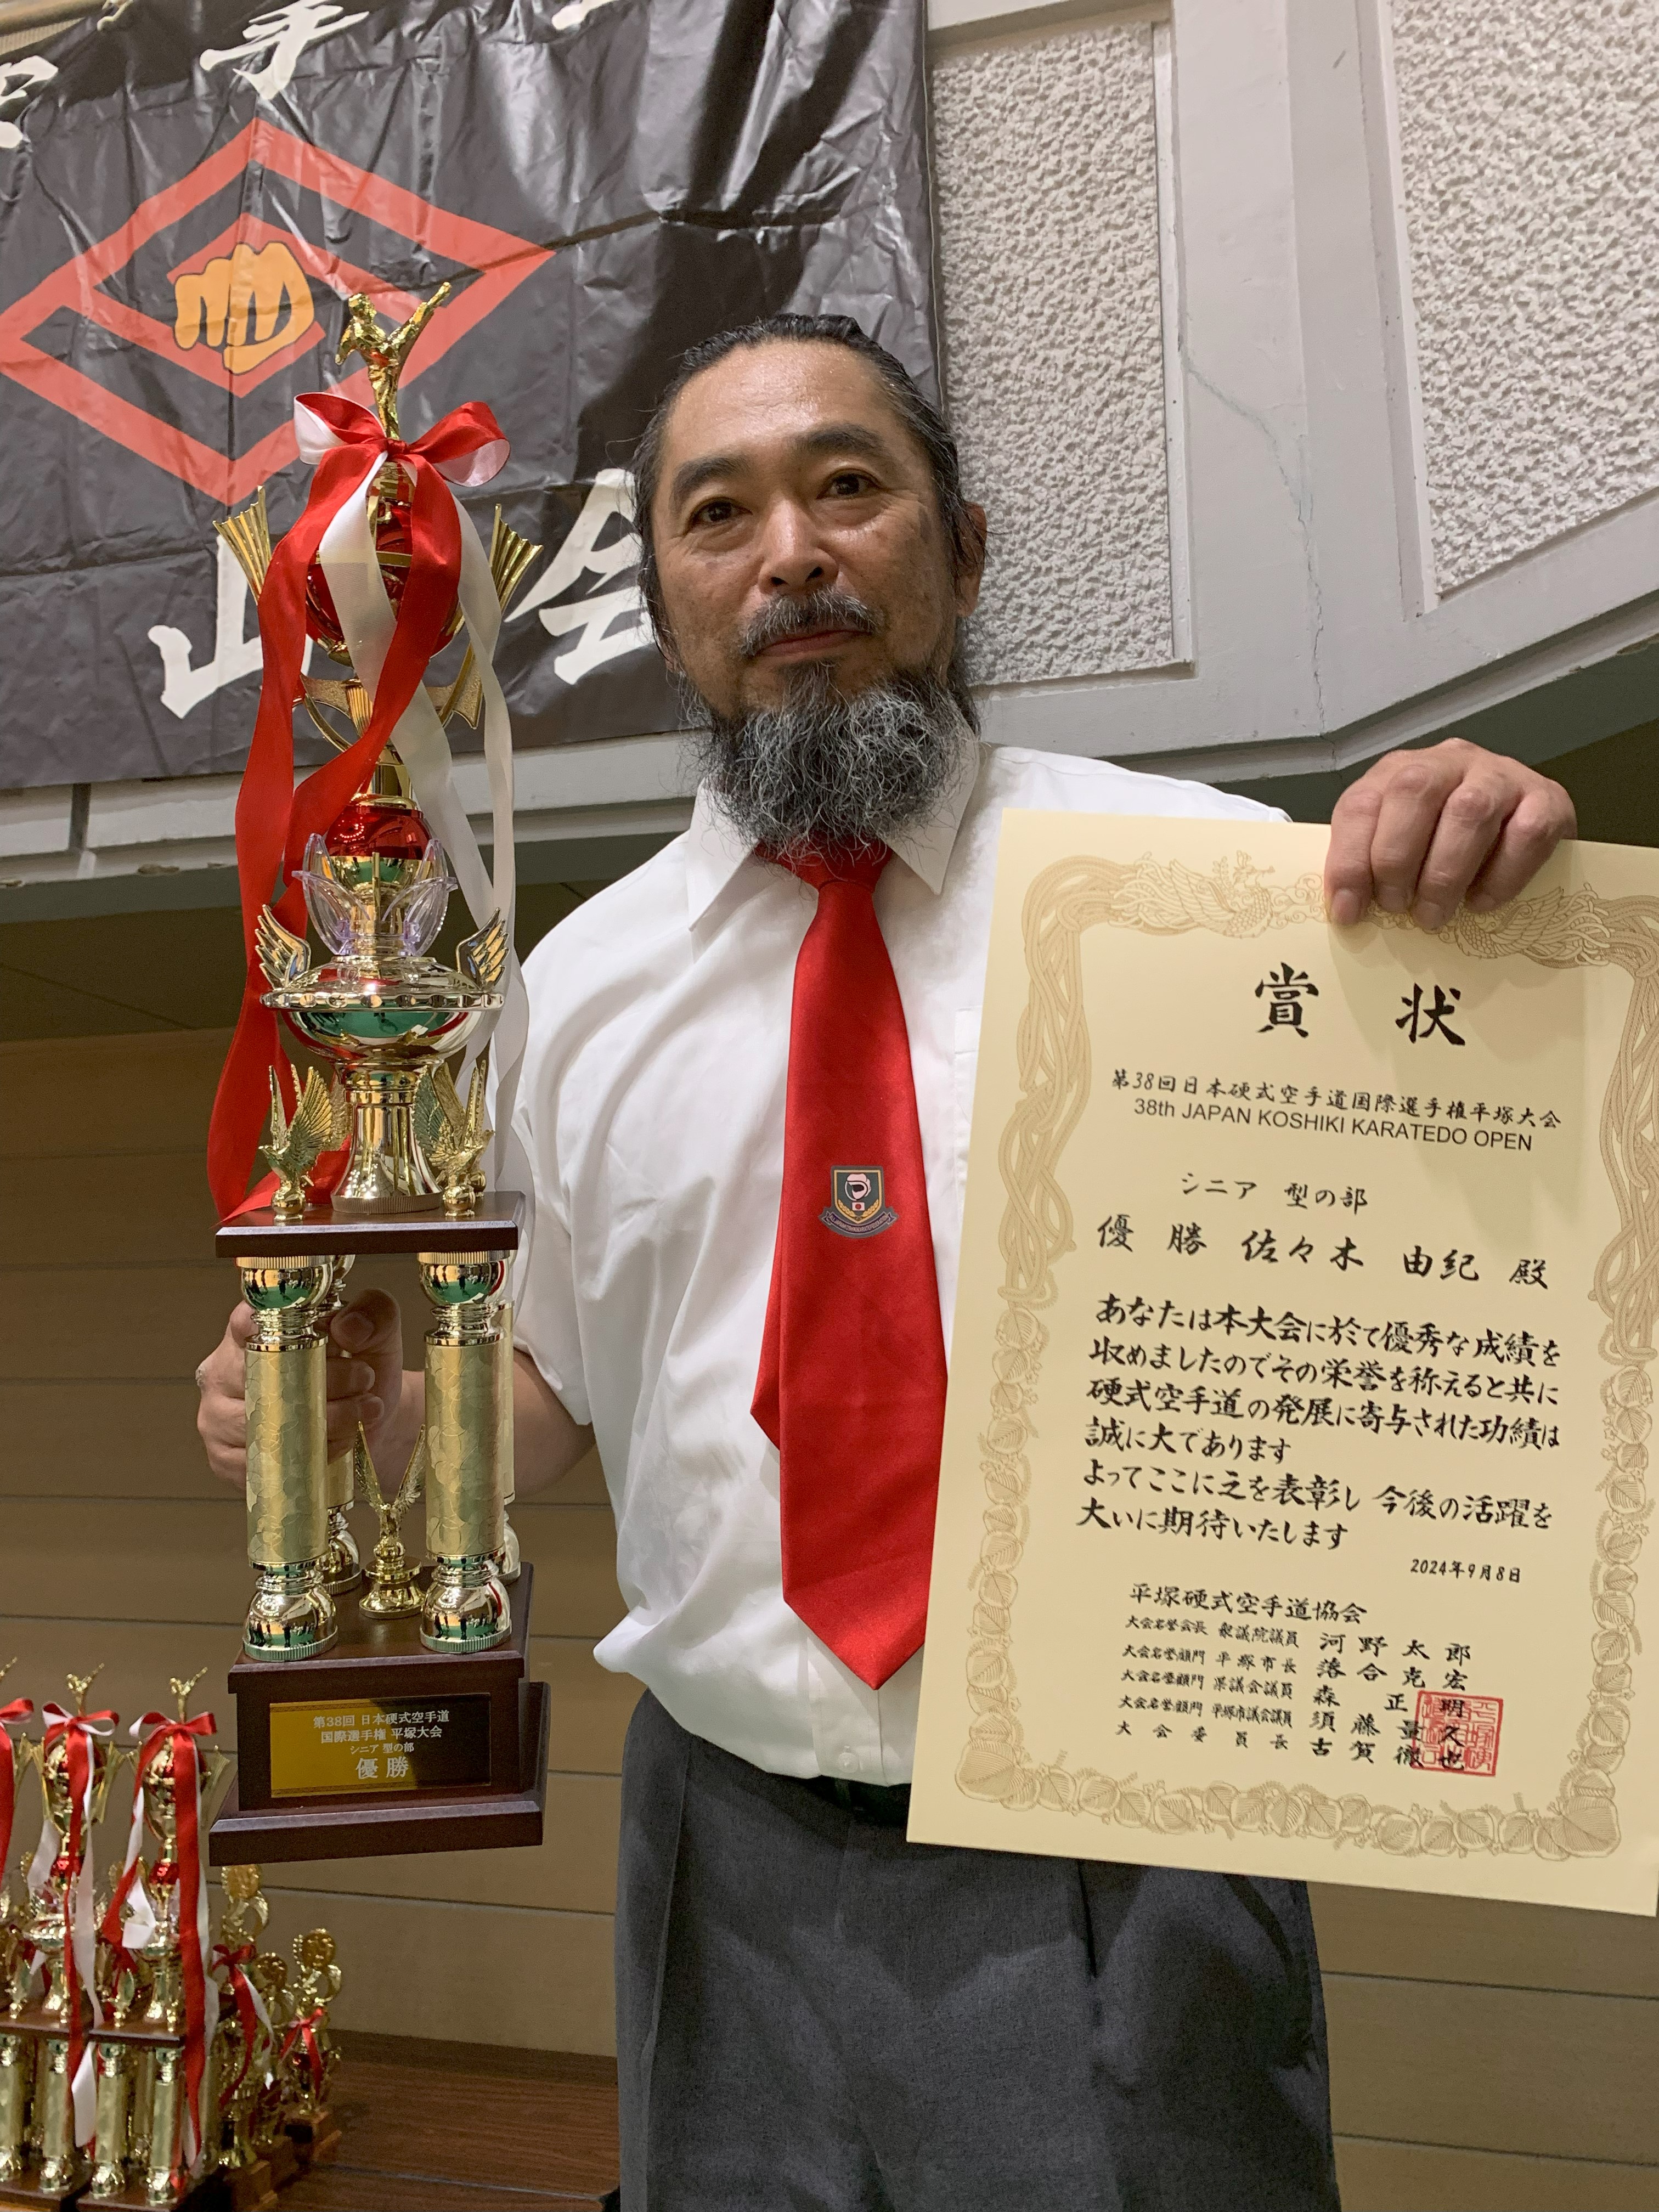 手
山 会
賞 状
第38回日本硬式空手道国際選手権平塚大会
38th JAPAN KOSHIKI KARATEDO OPEN
シニア 型の部
優 勝 佐々木 由紀 殿
あなたは本大会に於て優秀な成績を
収めましたのでその栄誉を称えると共に
硬式空手道の発展に寄与された功績は
誠に大であります
よってここに之を表彰し 今後の活躍を
大いに期待いたします
2024年9月8日
平塚硬式空手道協会
大会名誉会長 衆議院議員 河野太郎
大会名誉顧門 平塚市長 落合克宏
大会名誉顧門 県議会議員 森正明
大会名誉顧門 平塚市議会議員 須藤量久
大会委員長 古賀徹也
第38回 日本硬式空手道
国際選手権 平塚大会
シニア 型の部
優勝